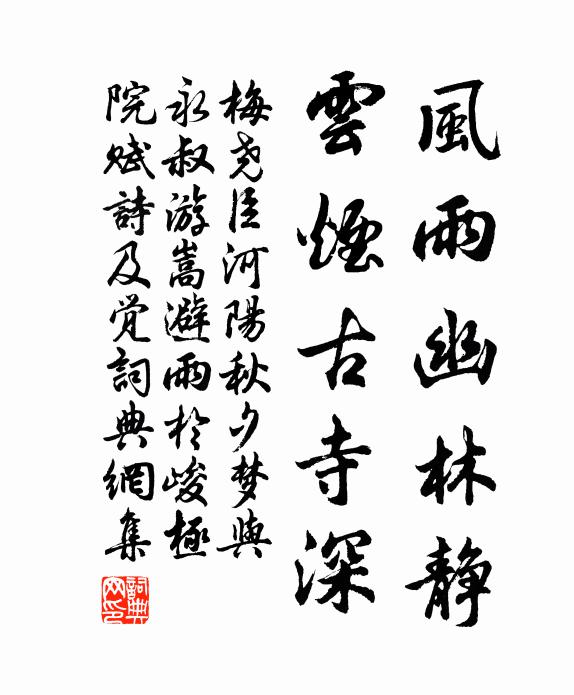 風雨幽林静
雲煙古寺深
梅尧臣河陽秋夕梦與
永叔游嵩避雨於峻極
院赋詩及觉詞典網集
詞典
网印